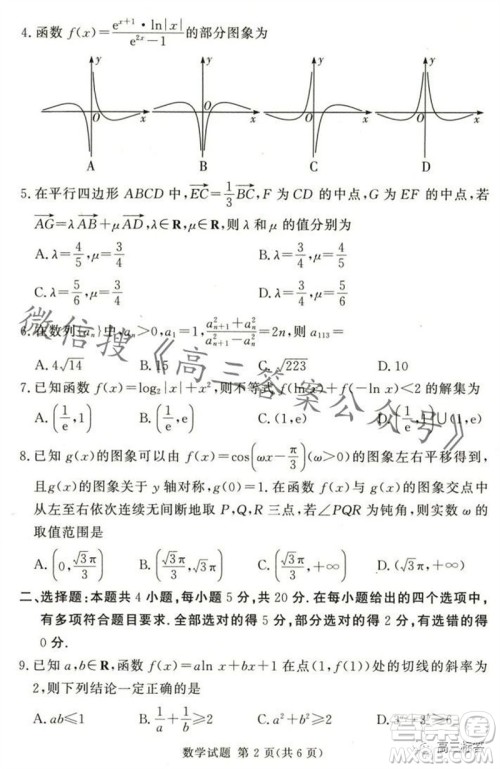 4.函数 f(x)=(e^{x+1}·ln|x|)/(e^{2x}-1)的部分图象为
y y y y
O x O x O x O x
A B C D
5.在平行四边形 ABCD 中,→EC=1/3→BC,F 为 CD 的中点,G 为 EF 的中点,若
→AG=λ→AB+μ→AD,λ∈R,μ∈R,则 λ 和 μ 的值分别为
A.λ=4/5,μ=3/4 B.λ=3/4,μ=4/5
C.λ=5/6,μ=3/4 D.λ=3/4,μ=5/6
6.在数列{aₙ}中,aₙ>0,a₁=1,(a²ₙ₊₁+a²ₙ)/(a²ₙ₊₁-a²ₙ)=2n,则 a₁₁₃=
A.4√14 B.15 C.√223 D.10
7.已知函数 f(x)=log₂|x|+x²,则不等式 f(lnx)+f(-lnx)<2 的解集为
A.(1/e,1) B.(1/e,e) C.(1,e) D.(1/e,1)∪(1,e)
8.已知 g(x)的图象可以由 f(x)=cos(ωx-π/3)(ω>0)的图象左右平移得到,
且 g(x)的图象关于 y 轴对称,f(x)的图象与 g(x)的图象交点中
从左至右依次连续无间断地取 P,Q,R 三点,若∠PQR 为钝角,则实数 ω 的
取值范围是
A.(0,√3π/3) B.(√3π/3,√3π) C.(0,√3π) D.(√3π,+∞)
二、选择题:本题共 4 小题,每小题 5 分,共 20 分.在每小题给出的四个选项中,
有多项符合题目要求.全部选对的得 5 分,部分选对的得 2 分,有选错的得
0 分.
9.已知 a,b∈R,函数 f(x)=alnx+bx+1 在点(1,f(1))处的切线的斜率为
2,则下列结论一定正确的是
A.ab≤1 B.1/a+1/b≥2 C.a²+b²≥2 D.3ᵃ+3ᵇ≥6
数学试题 第 2 页(共 6 页)
微信搜《高三答案公众号》